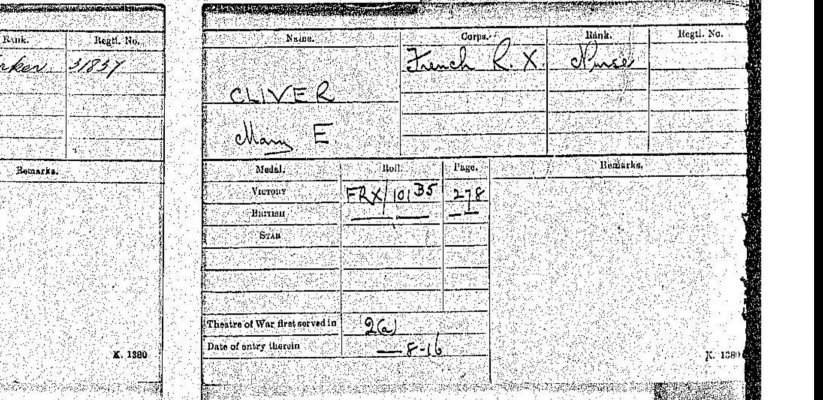 Rank. Regtl. No.
rker 31837
Remarks.
K. 1380
Name. Corps. Rank. Regtl. No.
French R. X. Nurse
CLIVER
Mary E
Medal. Roll. Page. Remarks.
VICTORY FRX/101 B5 278
BRITISH — — — —
STAR
Theatre of War first served in 2(a)
Date of entry therein — 8-16
K. 1380